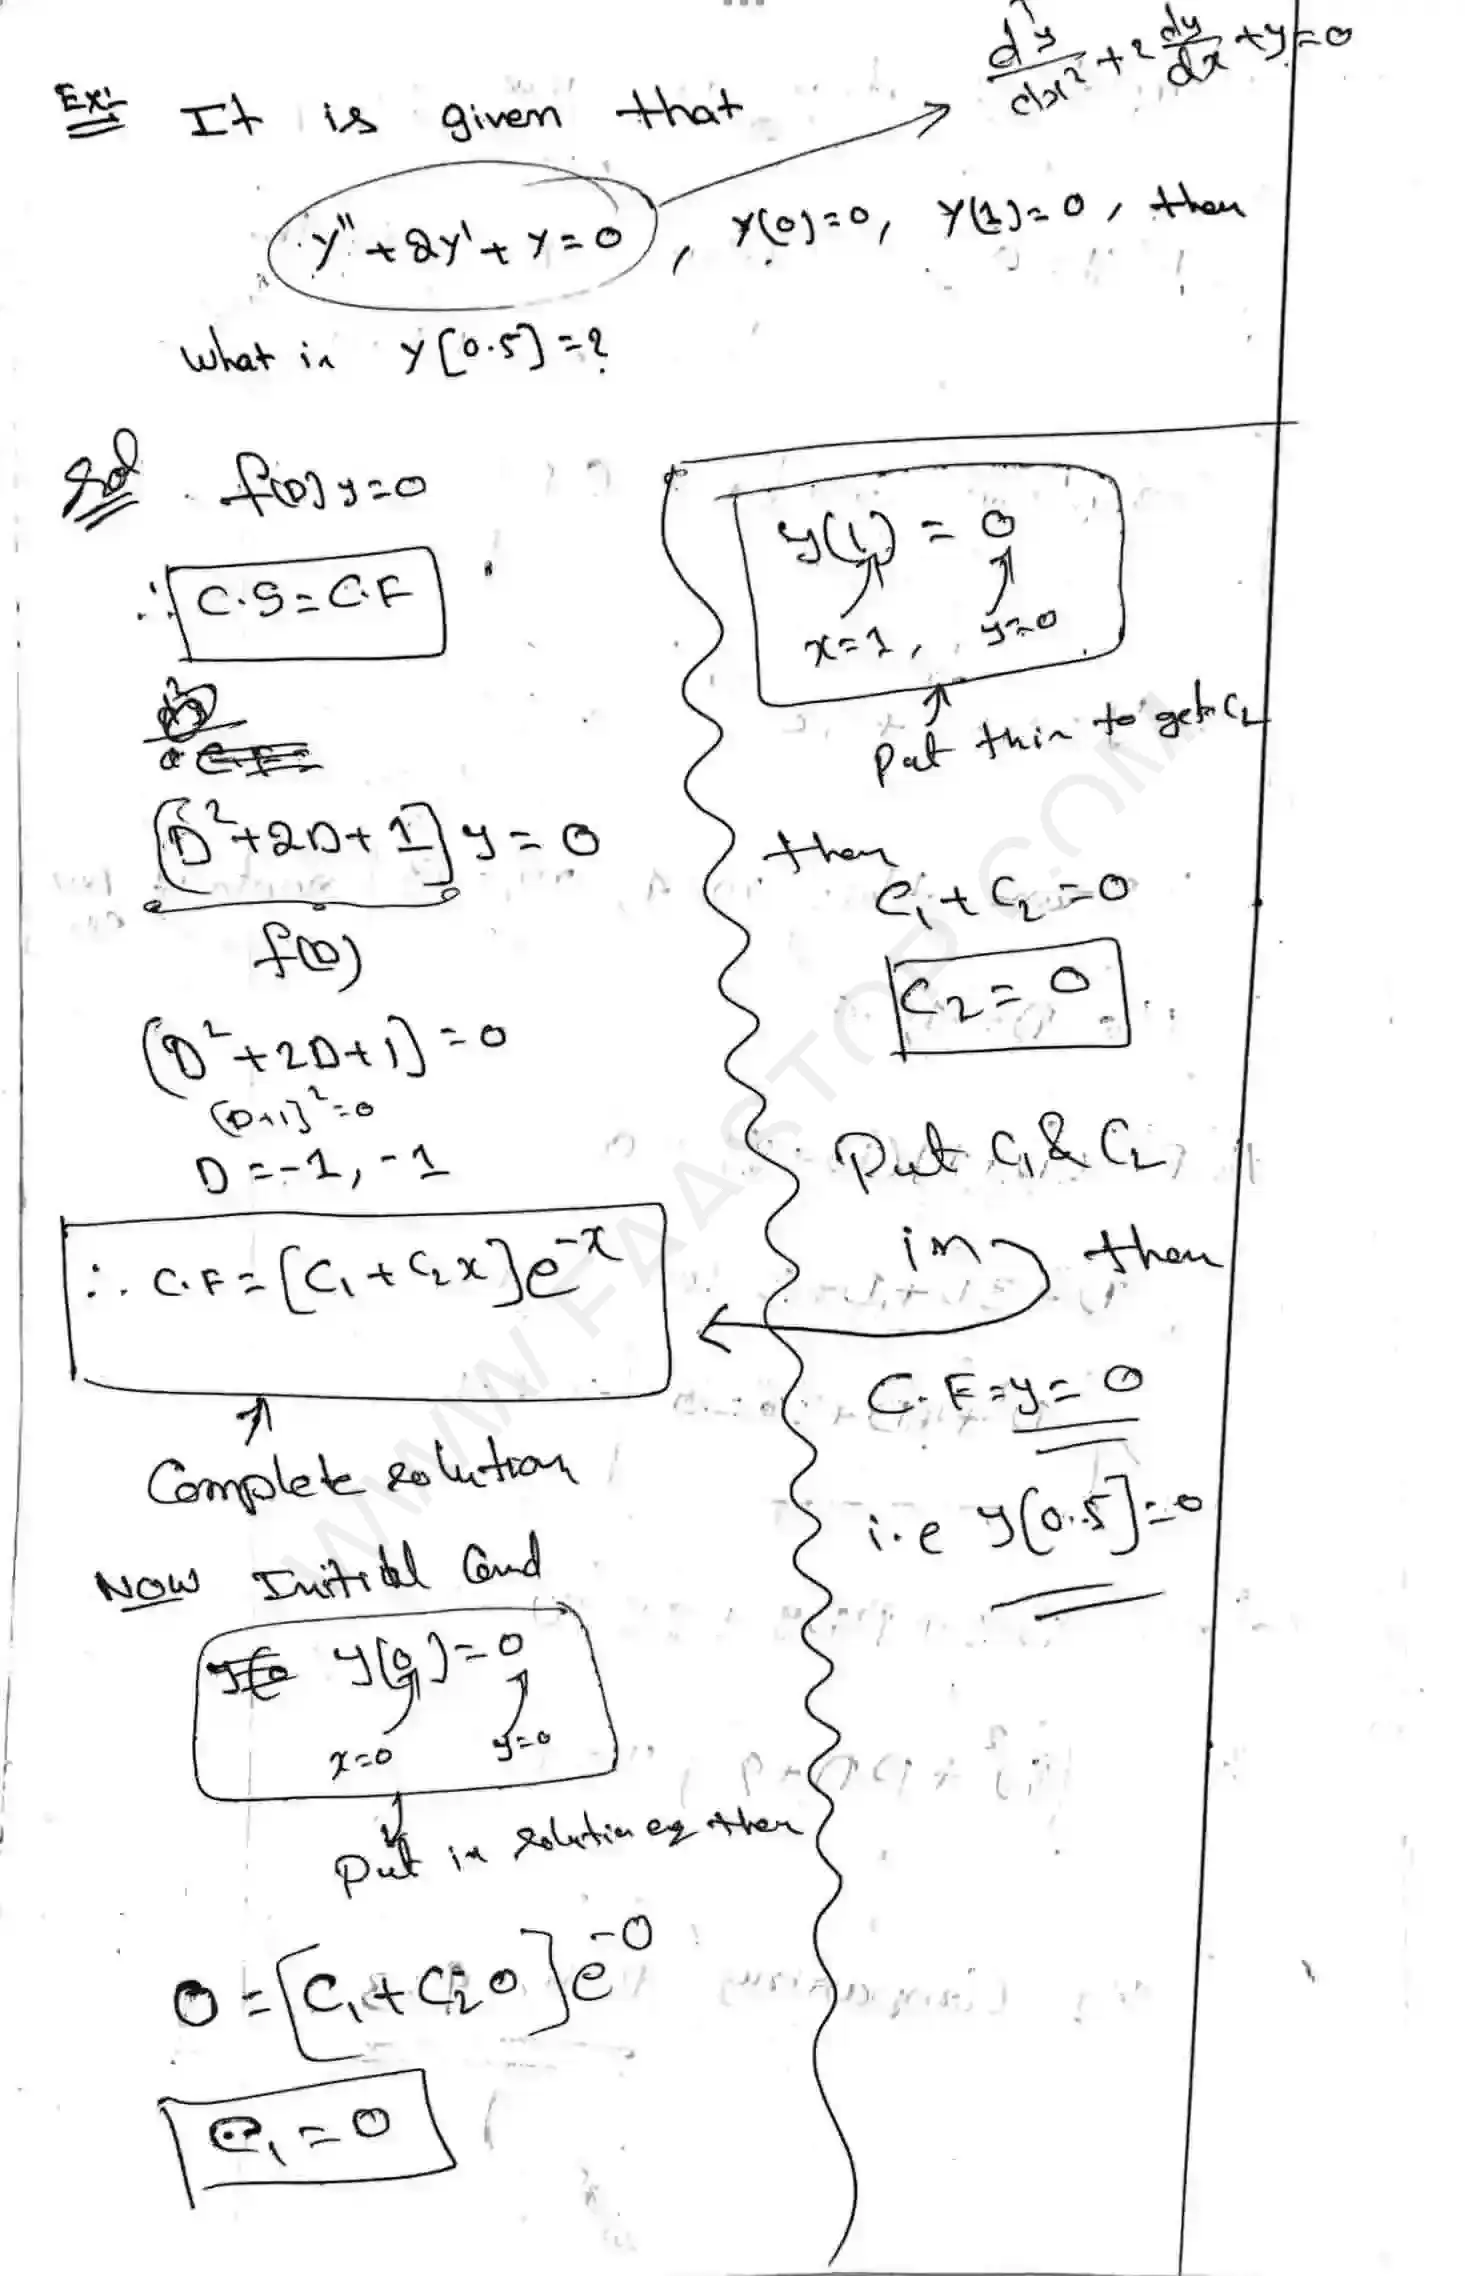 Ex:- It is given that
d²y/dx² + 2 dy/dx + y = 0
y'' + 2y' + y = 0 , y(0) = 0, y(1) = 0, then
what is y[0.5] = ?
Sol f(D) y = 0
∴ C.S = C.F
[D² + 2D + 1] y = 0
f(D)
(D² + 2D + 1) = 0
(D+1)² = 0
D = -1, -1
∴ C.F = [C₁ + C₂x] e^-x
Complete solution
Now Initial Cond
y(0) = 0
x = 0 y = 0
Put in solution eq then
0 = [C₁ + C₂ 0] e^-0
C₁ = 0
y(1) = 0
x = 1, y = 0
Put this to get C₂
then
C₁ + C₂ = 0
C₂ = 0
Put C₁ & C₂
in then
C.F = y = 0
i.e y[0.5] = 0
WWW.FAASTOP.COM